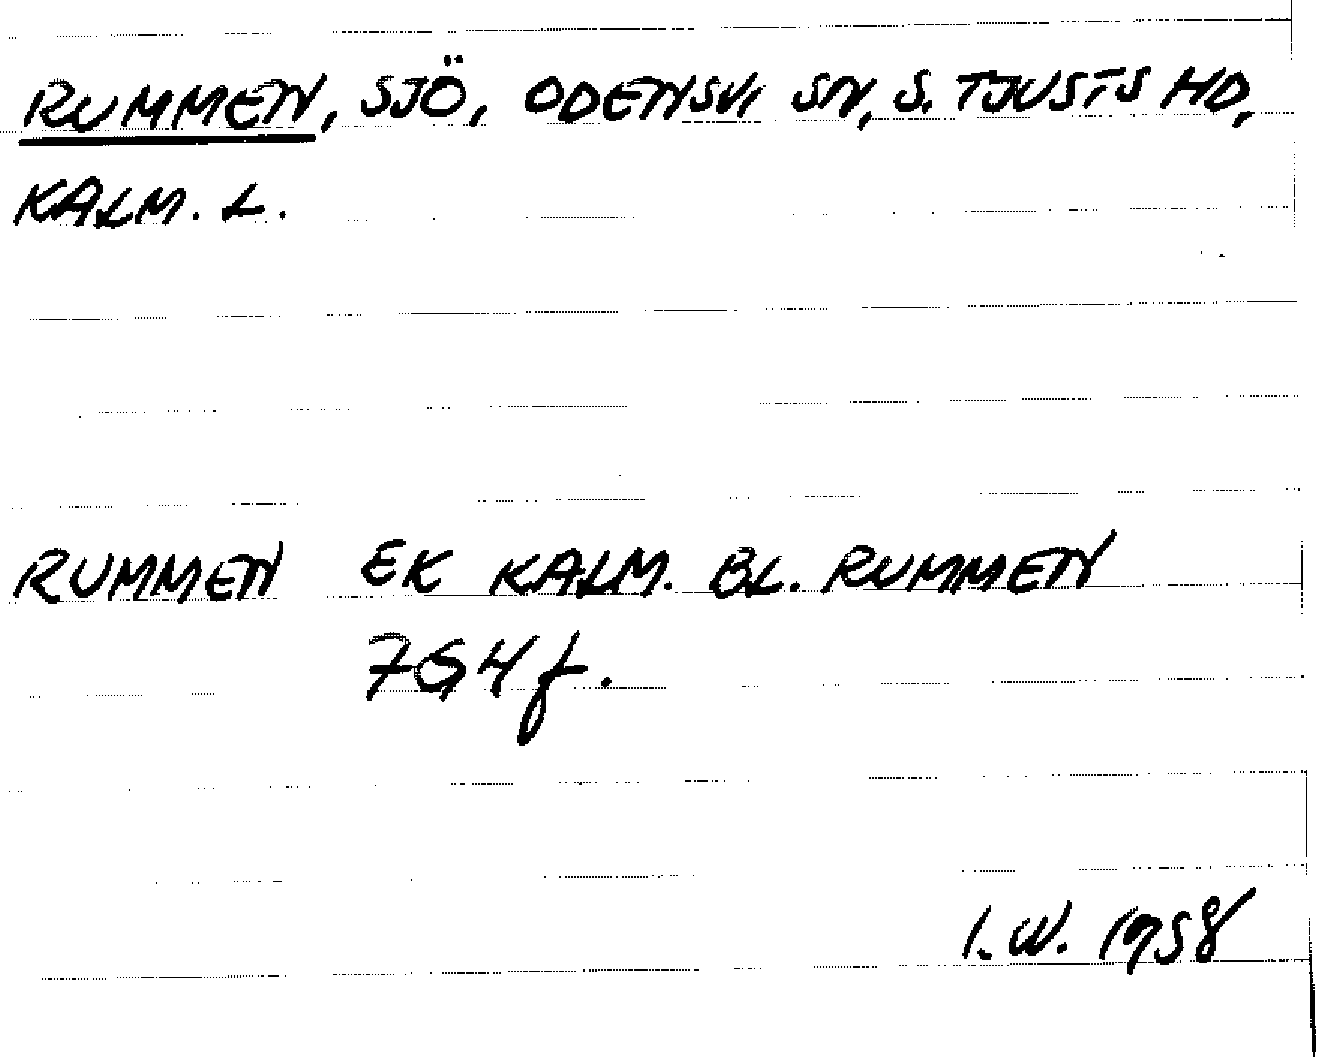 RUMMEN, SJÖ, ODENSVI SN, S. TJUSTS HD,
KALM. L.
RUMMEN EK KALM. BL. RUMMEN
764 f.
I.W. 1958